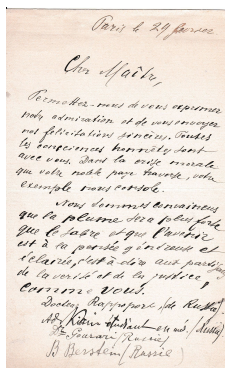 Paris le 29 Janvier
Cher Maître,
Permettez-nous de vous exprimer
notre admiration et de vous envoyer
nos félicitations sincères. Toutes
les consciences honnêtes sont
avec vous. Dans la crise morale
que votre noble pays traverse, votre
exemple nous console.
Nous sommes convaincus
que la plume sera plus forte
que le sabre et que l'avenir
est à la pensée généreuse et
éclairée, c'est-à-dire aux partisans
de la vérité et de la justice,
comme vous.
Docteur Rappoport (de Russie)
étudiant en (Russie)
(Russie)
B Berstein (Russie)